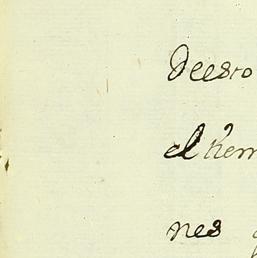 Deesto
el tiem
nes